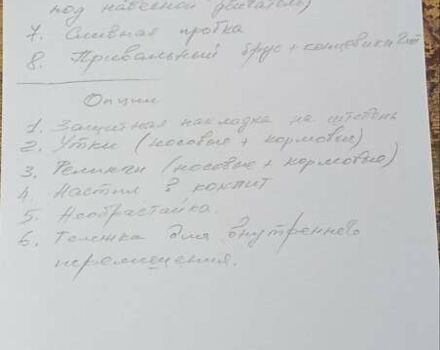 под навесной двигатель)
7. Сливная пробка
8. Привальный брус + концевики 2шт
Опции
1. Защитная накладка на штевень
2. Утки (носовые + кормовые)
3. Релинги (носовые + кормовые)
4. Настил ? кокпит
5. Необрастайка.
6. Тележка для внутреннего
перемещения.